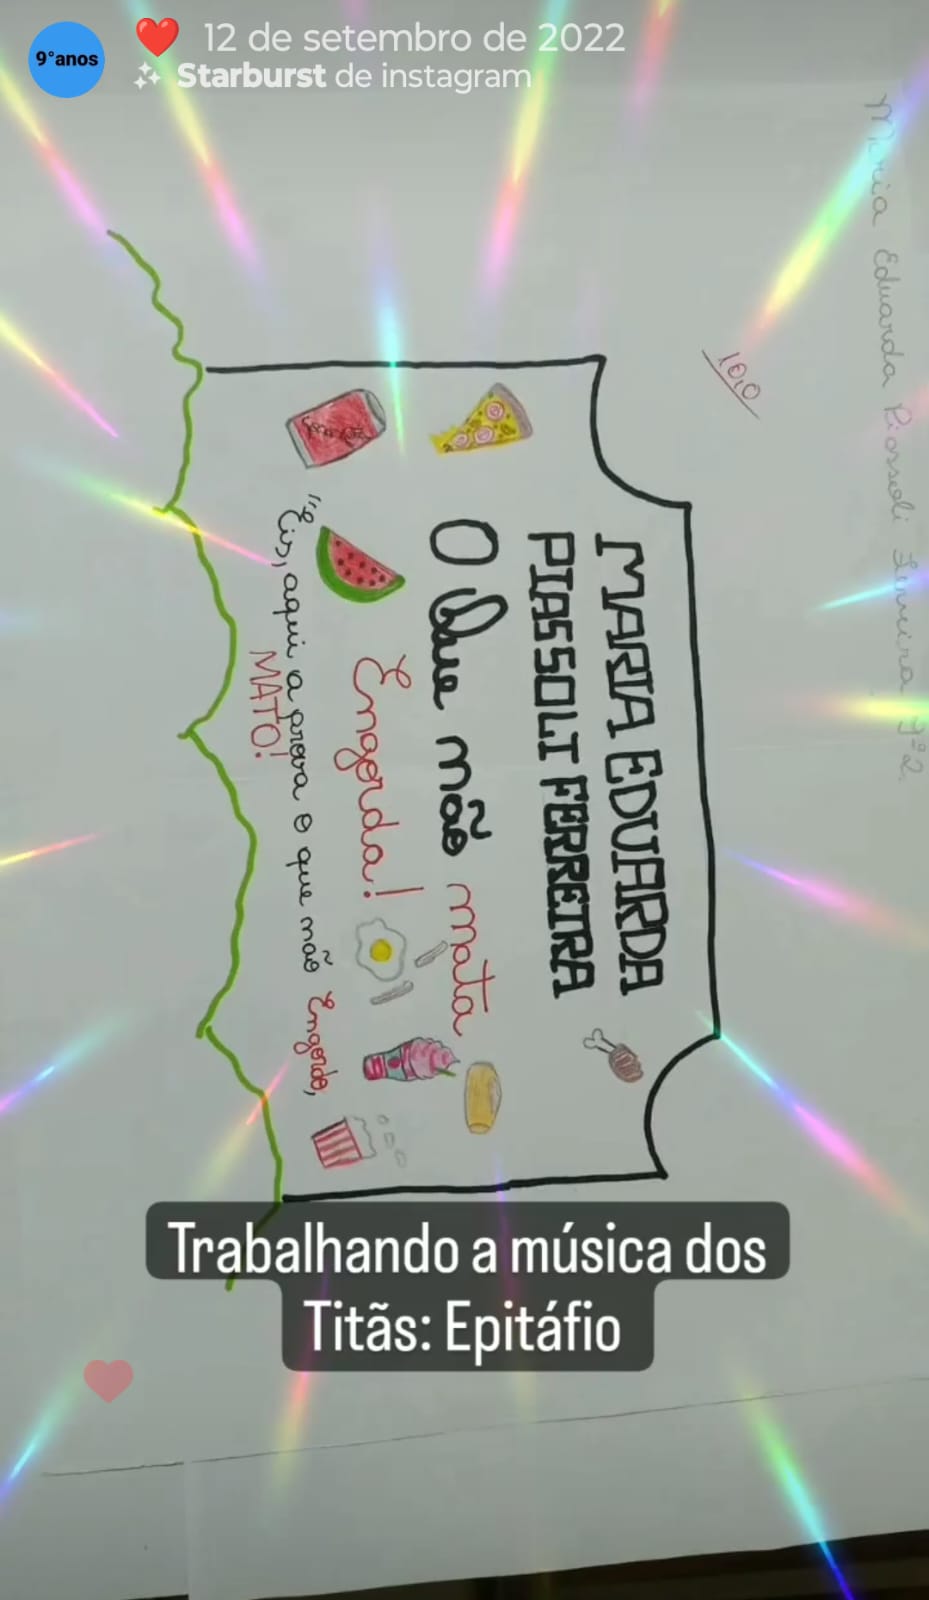 9°anos
❤️ 12 de setembro de 2022
Starburst de instagram
Maria Eduarda Piassoli Ferreira 9º2
10,0
MARIA EDUARDA
PIASSOLI FERREIRA
O Que não mata
Engorda!
"Eis, aqui a prova o que não Engorda,
MATO!
Trabalhando a música dos
Titãs: Epitáfio